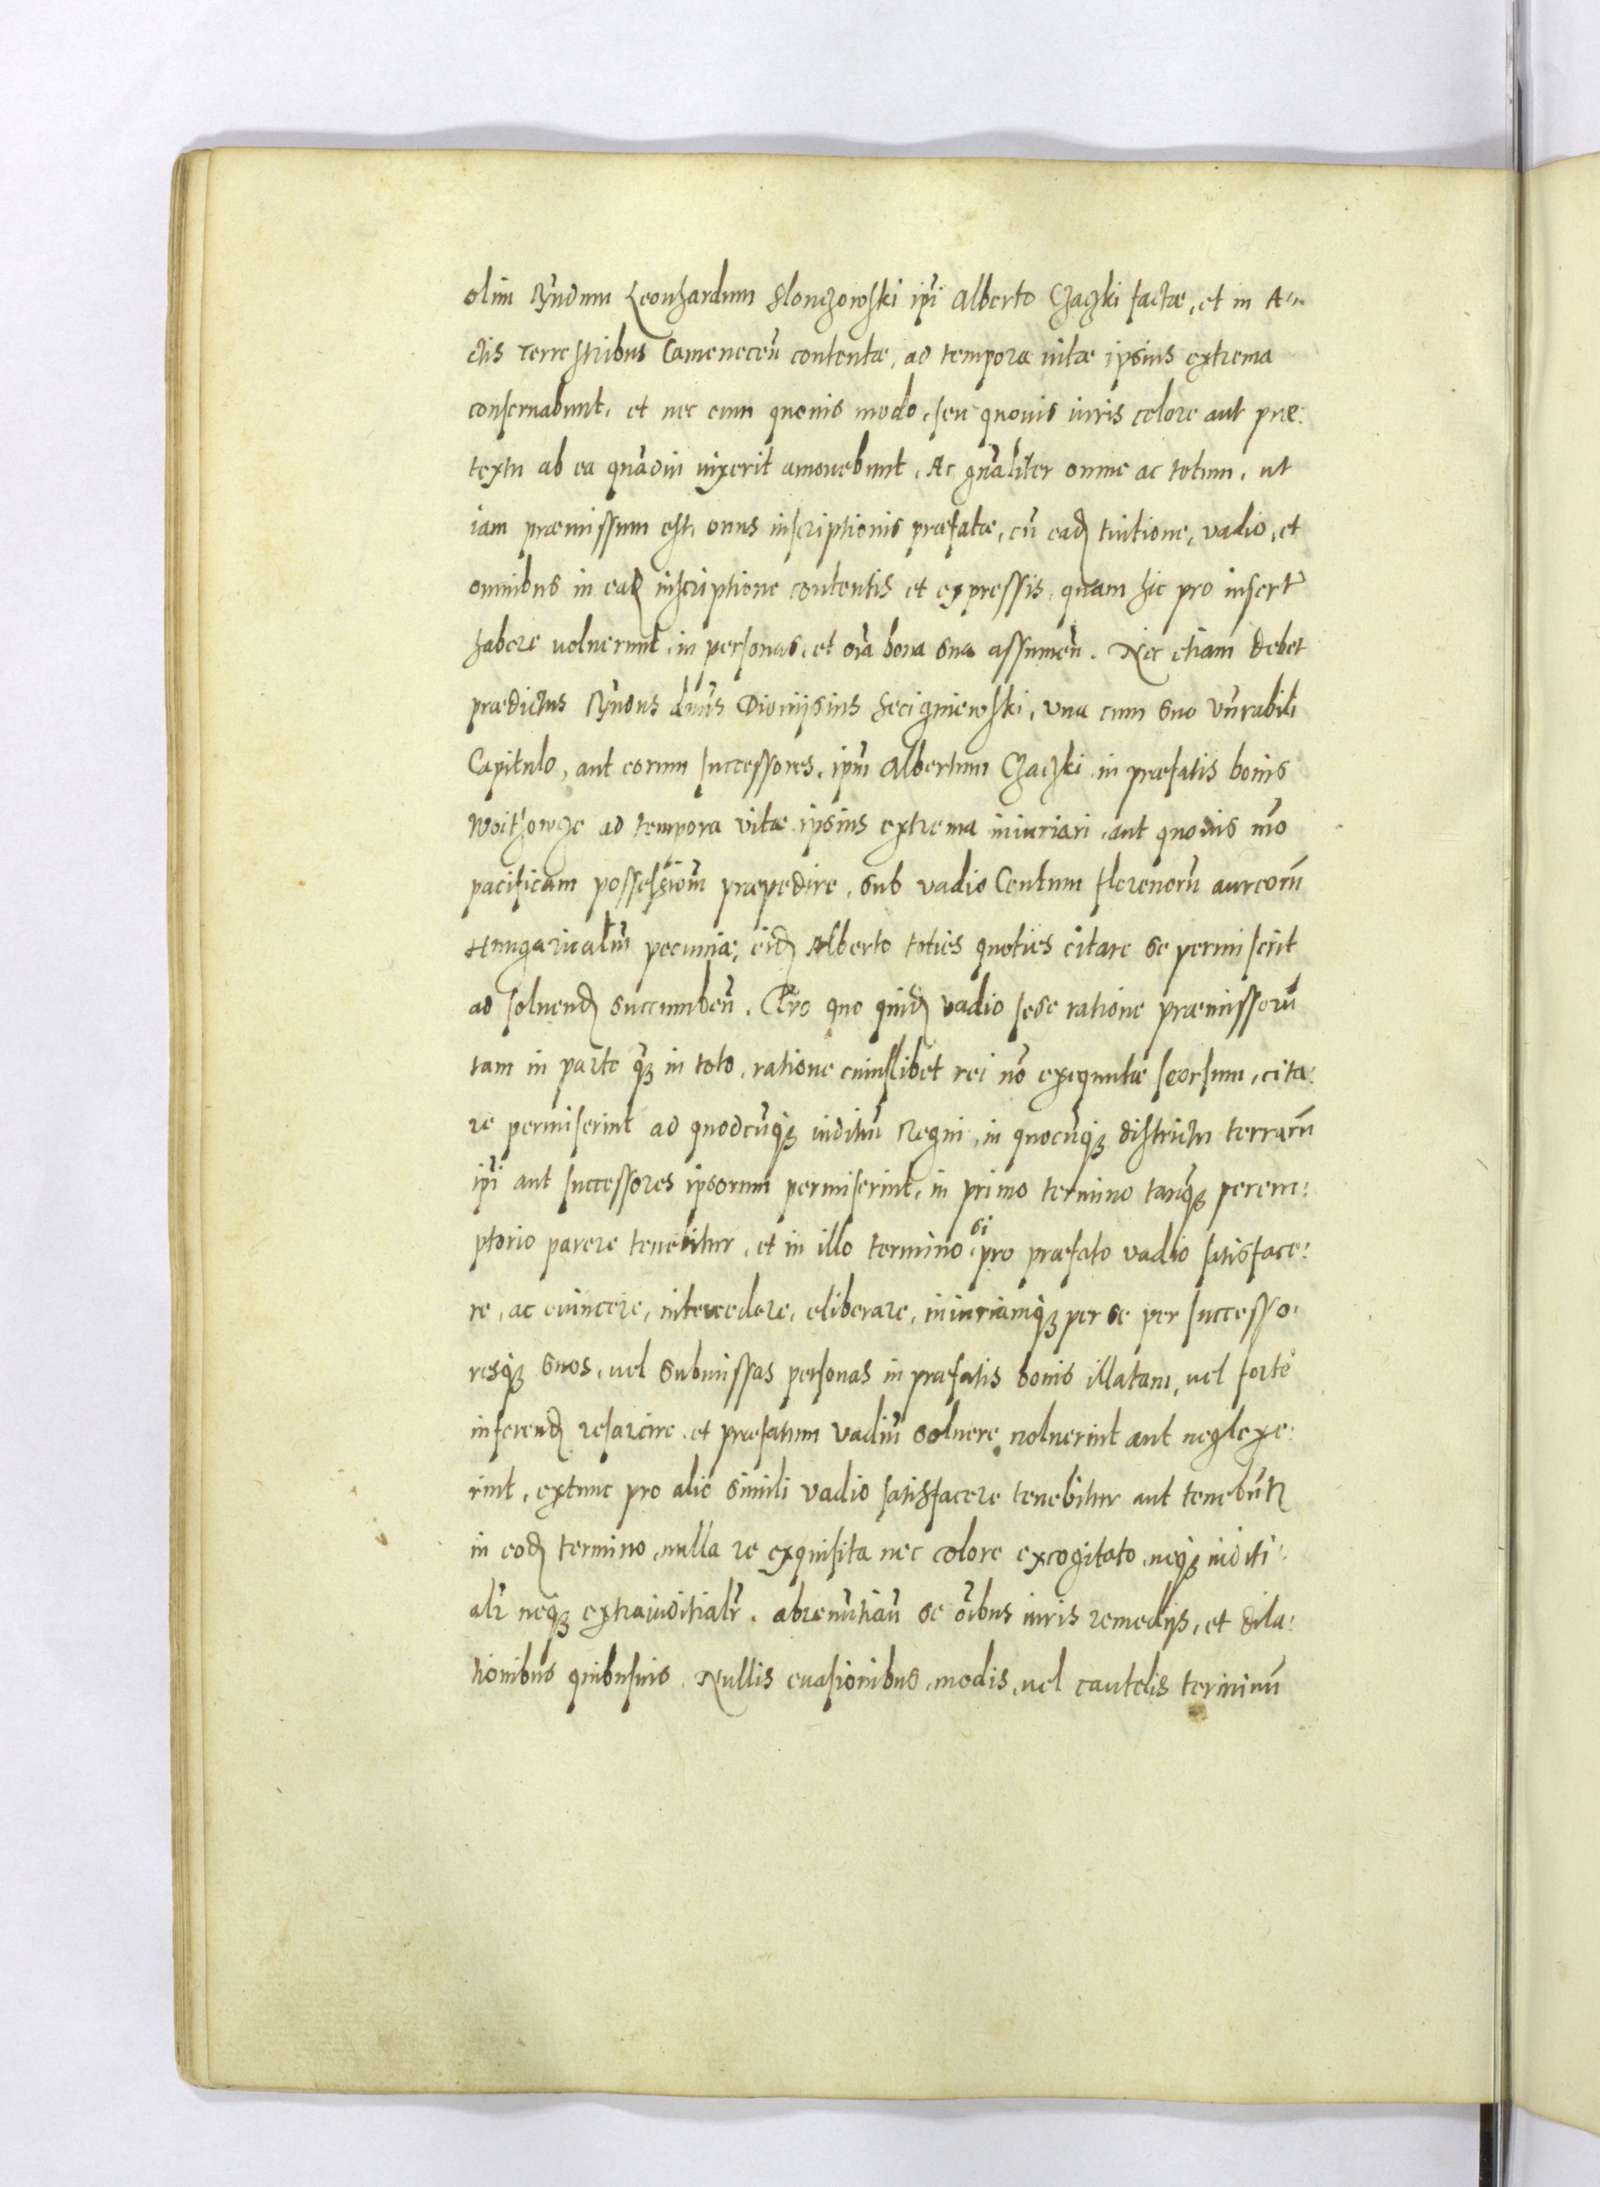 olim Rn̄dum Leonhardum Slonczowski ip̄i Alberto Czaczki factæ, et in A-
ctis Terrestribus Camenecen̄ contentæ, ad tempora uitæ ipsius extrema
conseruabunt, et nec eum quouis modo, seu quouis iuris colore aut præ:
textu ab ea quādiu uixerit amouebunt, Ac gn̄aliter omne ac totum, ut
iam præmissum est, onus inscriptionis præfatæ, cū ead tuitione, vadio, et
omnibus in ead inscriptione contentis et expressis, quam hic pro insert
habere uoluerunt, in personas, et oīa bona sua assumen̄. Nec etiam debet
prædictus Rn̄dus dn̄us Dioniisius Secigniewski, una cum suo Vn̄rabili
Capitulo, aut eorum successores, ipm̄ Albertum Czaczki in præfatis bonis
Woithowcze ad tempora vitæ ipsius extrema iniuriari, aut quouis mō
pacificam possessionē præpedire, sub vadio Centum florenorū aureorū
Hungaricaliū pecuniæ, eid Alberto toties quoties citare se permiserit
ad soluend succumben̄. Pro quo quid vadio sese ratione præmissorū
tam in parte q̄ in toto, ratione cuiuslibet rei nō exequutæ seorsum, cita:
re permiserint ad quodcūq iuditiū Regni, in quocūq districtu terrarū
ip̄i aut successores ipsorum permiserint, in primo termino tanq̄ perem:
ptorio parere tenebitur, et in illo termino si pro præfato vadio satisface:
re, ac euincere, intercedere, eliberare, iniuriamq per se per successo:
resq suos, uel submissas personas in præfatis bonis illatam, uel forte
inferend resarcire, et præfatum vadiū soluere noluerint aut neglexe:
rint, extunc pro alio simili vadio satisfacere tenebitur aut tenebūt
in eod termino, nulla re exquisita nec colore excogitato, neq iuditi:
alr̄ neq extraiuditialr̄. abrenūtian̄ se oībus iuris remedijs, et dila:
tionibus quibusuis. Nullis euasionibus, modis, uel cautelis terminū